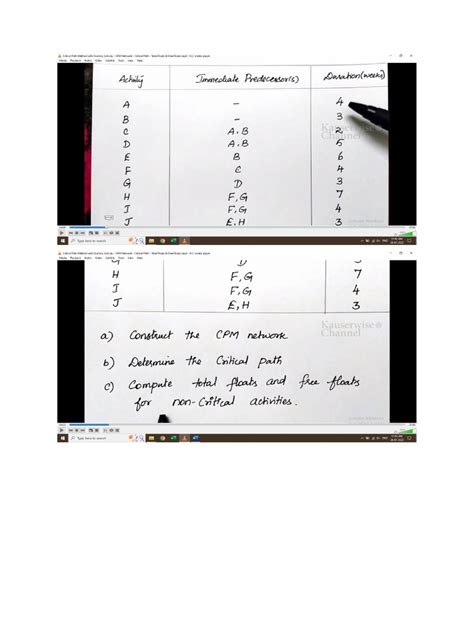 Activity Immediate Predecessor(s) Duration(weeks)
A - 4
B - 3
C A,B 2
D A,B 5
E B 6
F C 4
G D 3
H F,G 7
I F,G 4
J E,H 3
Kauserwise
Channel
Type here to search
G D 3
H F,G 7
I F,G 4
J E,H 3
Kauserwise®
Channel
a) Construct the CPM network
b) Determine the Critical path
c) Compute total floats and free floats
for non-Critical activities.
Type here to search